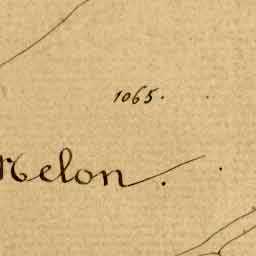 1065.
Melon.